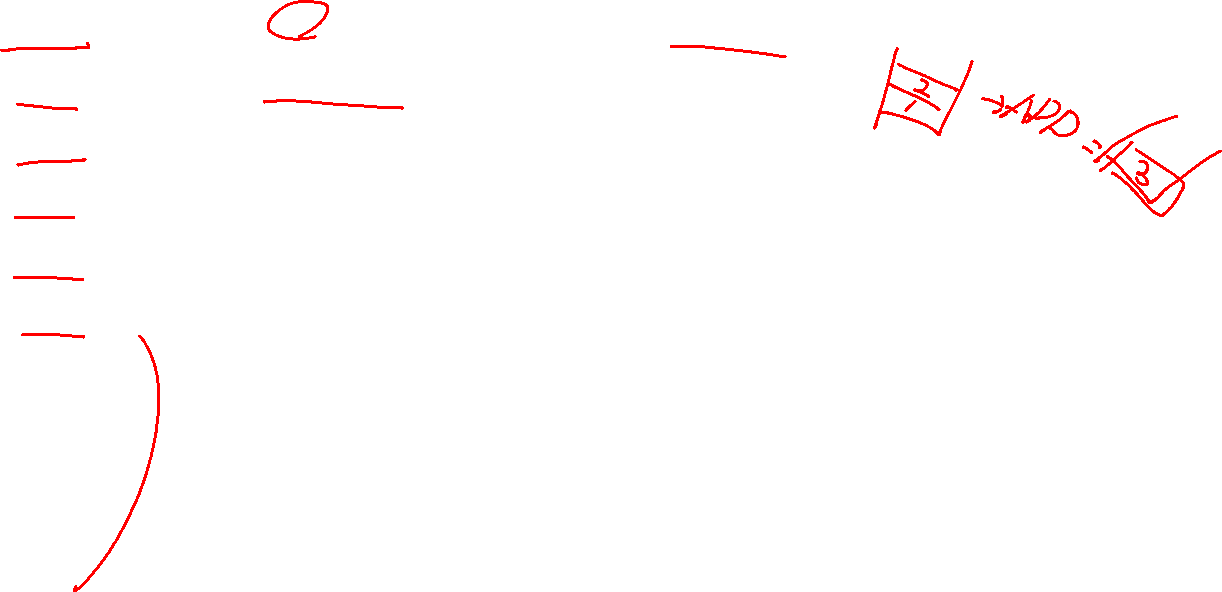 2
1 → ADD = 3